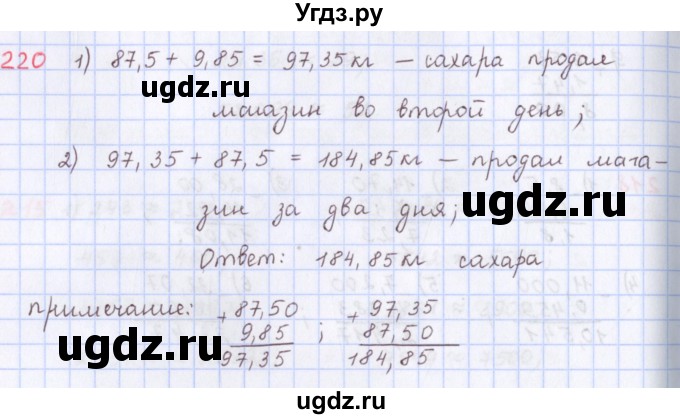 Угдз.ру
220 1) 87,5 + 9,85 = 97,35 кг — сахара продал
магазин во второй день;
2) 97,35 + 87,5 = 184,85 кг — продал мага-
зин за два дня;
Ответ: 184,85 кг сахара
примечание: + 87,50 ; + 97,35
9,85 87,50
97,35 184,85
ugdz.ru
ugdz.ru
ugdz.ru
ugdz.ru
ugdz.ru
ugdz.ru